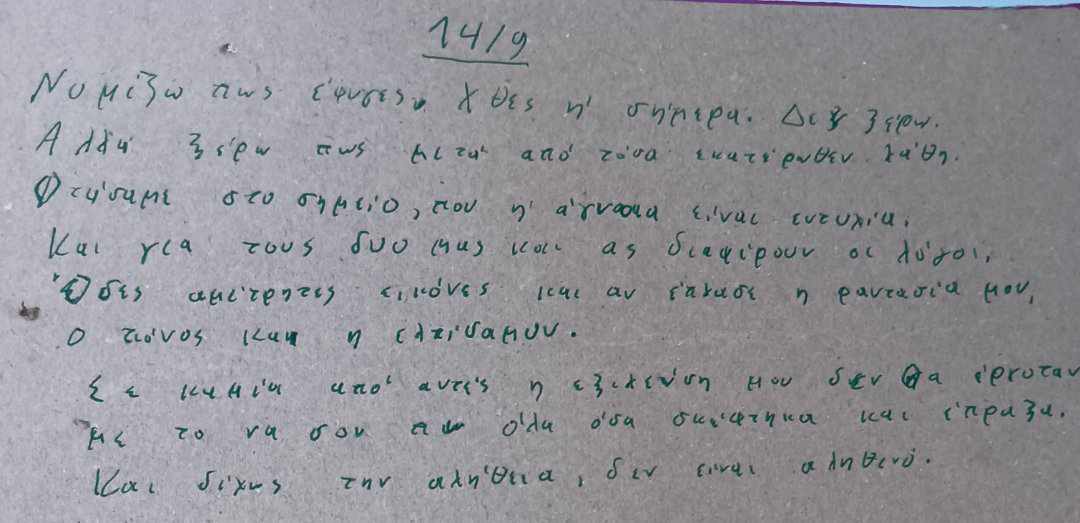 14/9
Νομίζω πως έφυγες. Χθες ή σήμερα. Δεν ξέρω.
Αλλά ξέρω πως μετά από τόσα εκατέρωθεν λάθη.
Φτάσαμε στο σημείο, που η άγνοια είναι ευτυχία.
Και για τους δυο μας και ας διαφέρουν οι λόγοι.
Όσες αμέτρητες εικόνες και αν έπλασε η φαντασία μου,
ο πόνος και η ελπίδα μου.
Σε καμία από αυτές η εξιλέωση μου δεν θα έρχοταν
με το να σου πω όλα όσα σκέφτηκα και έπραξα.
Και δίχως την αλήθεια, δεν είναι αληθινό.